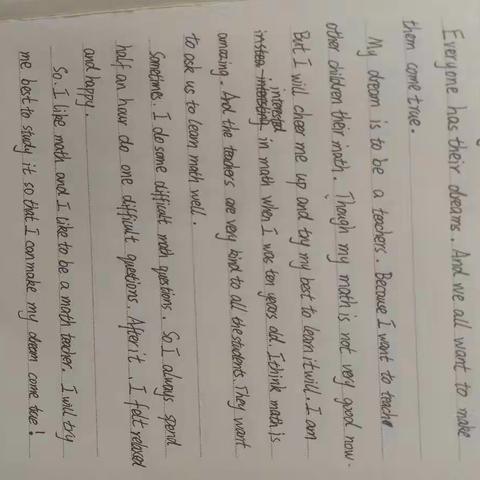 Everyone has their dreams. And we all want to make
them come true.
My dream is to be a teachers. Because I want to teach
other children their math. Though my math is not very good now.
But I will cheer me up and try my best to learn it will. I am
interested
in math when I was ten years old. I think math is
amazing. And the teachers are very kind to all the students. They want
to ask us to learn math well.
Sometimes. I do some difficult math questions. So I always spend
half an hour do one difficult questions. After it. I felt relaxed
and happy.
So. I like math and I like to be a math teacher. I will try
me best to study it so that I can make my dream come true!